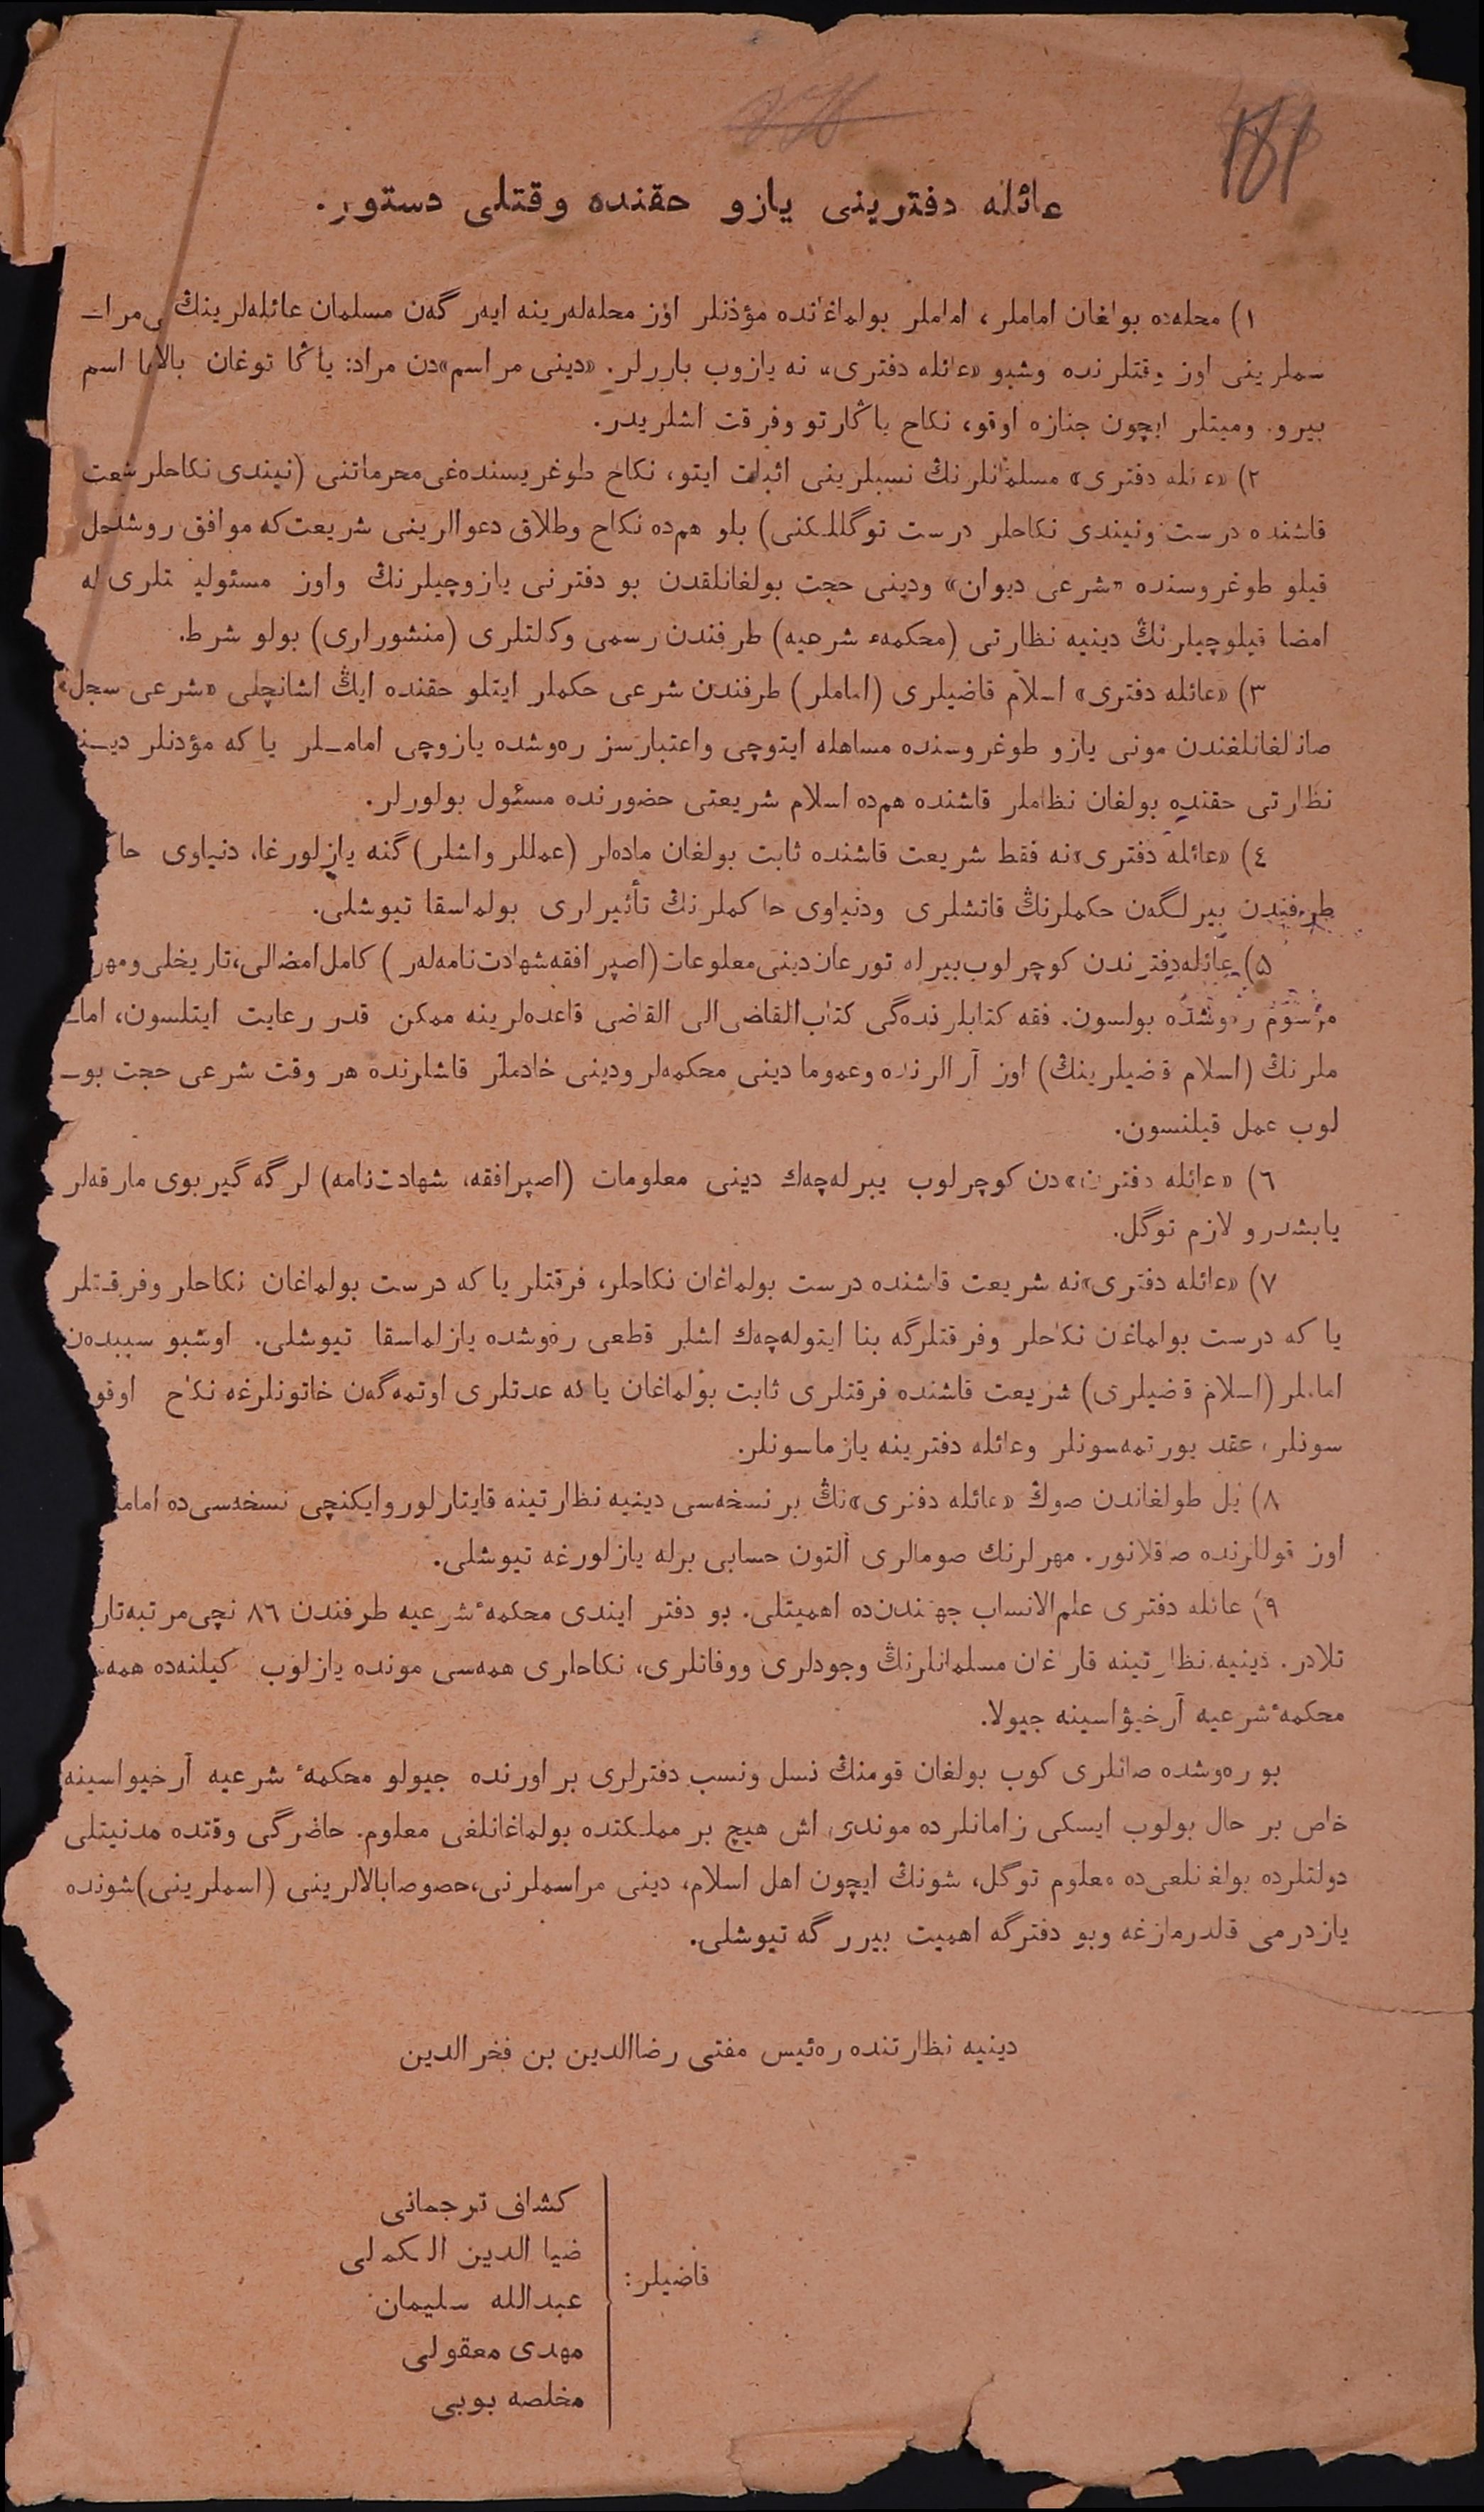 181
عائله دفترينى يازو حقنده وقتلى دستور.
١) محله‌ده بولغان اماملر، اماملر بولماغانده مؤذنلر اوز محله‌لەرينه ايەرگەن مسلمان عائله‌لرينڭ مرا
سملرينى اوز وقتلرنده وشبو «عائله دفترى» نه يازوب باررلر. «دينى مراسم»دن مراد: ياڭا توغان بالالرغا اسم
بيرو. وميتلر ايچون جنازه اوقو، نكاح ياڭارتو وفرقت اشلريدر.
٢) «عائله دفترى» مسلمانلرنڭ نسبلرينى اثبات ايتو، نكاح طوغريسنده‌غى محرماتنى (نيندى نكاحلر شريعت
قاشنده درست ونيندى نكاحلر درست توگللكنى) بلو هم‌ده نكاح وطلاق دعوالرينى شريعت‌كه موافق روشده حل
قيلو طوغروسنده «شرعى ديوان» ودينى حجت بولغانلقدن بو دفترنى يازوچيلرنڭ واوز مسئوليتلرى ايله
امضا قيلوچيلرنڭ دينيه نظارتى (محكمهء شرعيه) طرفندن رسمى وكالتلرى (منشورارى) بولو شرط.
٣) «عائله دفترى» اسلام قاضيلرى (اماملر) طرفندن شرعى حكملر ايتلو حقنده ايڭ اشانچلى «شرعى سجل»
صانالغانلغندن مونى يازو طوغروسنده مساهله ايتوچى واعتبارسز ره‌وشده يازوچى اماملر يا كه مؤذنلر دينيه
نظارتى حقنده بولغان نظاملر قاشنده هم‌ده اسلام شريعتى حضورنده مسئول بولورلر.
٤) «عائله دفترى»نه فقط شريعت قاشنده ثابت بولغان ماده‌لر (عمللر واشلر) گنه يازلورغا، دنياوى حا
طرفندن بيرلگەن حكملرنڭ قاتشلرى ودنياوى حاكملرنڭ تأثيرلرى بولماسقا تيوشلى.
۵) عائله دفترندن كوچرلوب بيرله تورغان دينى معلومات (اصپرافقه شهادت‌نامه‌لەر) كامل امضالى، تاريخلى ومهر
مرسوم ره‌وشده بولسون. فقه كتابلرنده‌گى كتاب القاضى الى القاضى قاعده‌لرينه ممكن قدر رعايت ايتلسون، اما
ملرنڭ (اسلام قاضيلرينڭ) اوز آرالرنده وعموما دينى محكمه‌لر ودينى خادملر قاشلرنده هر وقت شرعى حجت بو
لوب عمل قيلنسون.
٦) «عائله دفترى»دن كوچرلوب بيرله‌چەك دينى معلومات (اصپرافقه، شهادت‌نامه) لرگه گيربوى مارقه‌لر
يابشدرو لازم توگل.
٧) «عائله دفترى»نه شريعت قاشنده درست بولماغان نكاحلر، فرقتلر يا كه درست بولماغان نكاحلر وفرقتلر
يا كه درست بولماغان نكاحلر وفرقتلرگه بنا ايتوله‌چەك اشلر قطعى ره‌وشده يازلماسقا تيوشلى. اوشبو سببدەن
اماملر (اسلام قاضيلرى) شريعت قاشنده فرقتلرى ثابت بولماغان يا كه عدتلرى اوتمەگەن خاتونلرغه نكاح اوقو
سونلر، عقد يورتمەسونلر وعائله دفترينه يازماسونلر.
٨) يل طولغاندن صوڭ «عائله دفترى»نڭ بر نسخه‌سى دينيه نظارتينه قايتارلور وايكنچى نسخه‌سى ده امام
اوز قوللرنده صاقلانور. مهرلرنك صومالرى آلتون حسابى برله يازلورغه تيوشلى.
٩) عائله دفترى علم الانساب جهتندن‌ده اهميتلى. بو دفتر ايندى محكمهٔ شرعيه طرفندن ٨٦ نچى مرتبه تار
تلادر. دينيه نظارتينه قارغان مسلمانلرنڭ وجودلرى ووفاتلرى، نكاحلرى همه‌سى مونده يازلوب كيلنه‌ده همه
محكمهٔ شرعيه آرخيۋاسينه جيولا.
بو ره‌وشده صانلرى كوب بولغان قومنڭ نسل ونسب دفترلرى بر اورنده جيولو محكمهٔ شرعيه آرخيواسينه
خاص بر حال بولوب ايسكى زامانلرده موندى اش هيچ بر مملكتده بولماغانلغى معلوم. حاضرگى وقتده مدنيتلى
دولتلرده بولغانلغى‌ده معلوم توگل، شونڭ ايچون اهل اسلام، دينى مراسملرنى، خصوصا بالالرينى (اسملرينى) شونده
يازدرمى قالدرمازغه وبو دفترگه اهميت بيررگه تيوشلى.
دينيه نظارتنده ره‌ئيس مفتى رضاالدين بن فخرالدين
قاضيلر:
كشاف ترجمانى
ضيا الدين الكمالى
عبدالله سليمان
مهدى معقولى
مخلصه بوبى